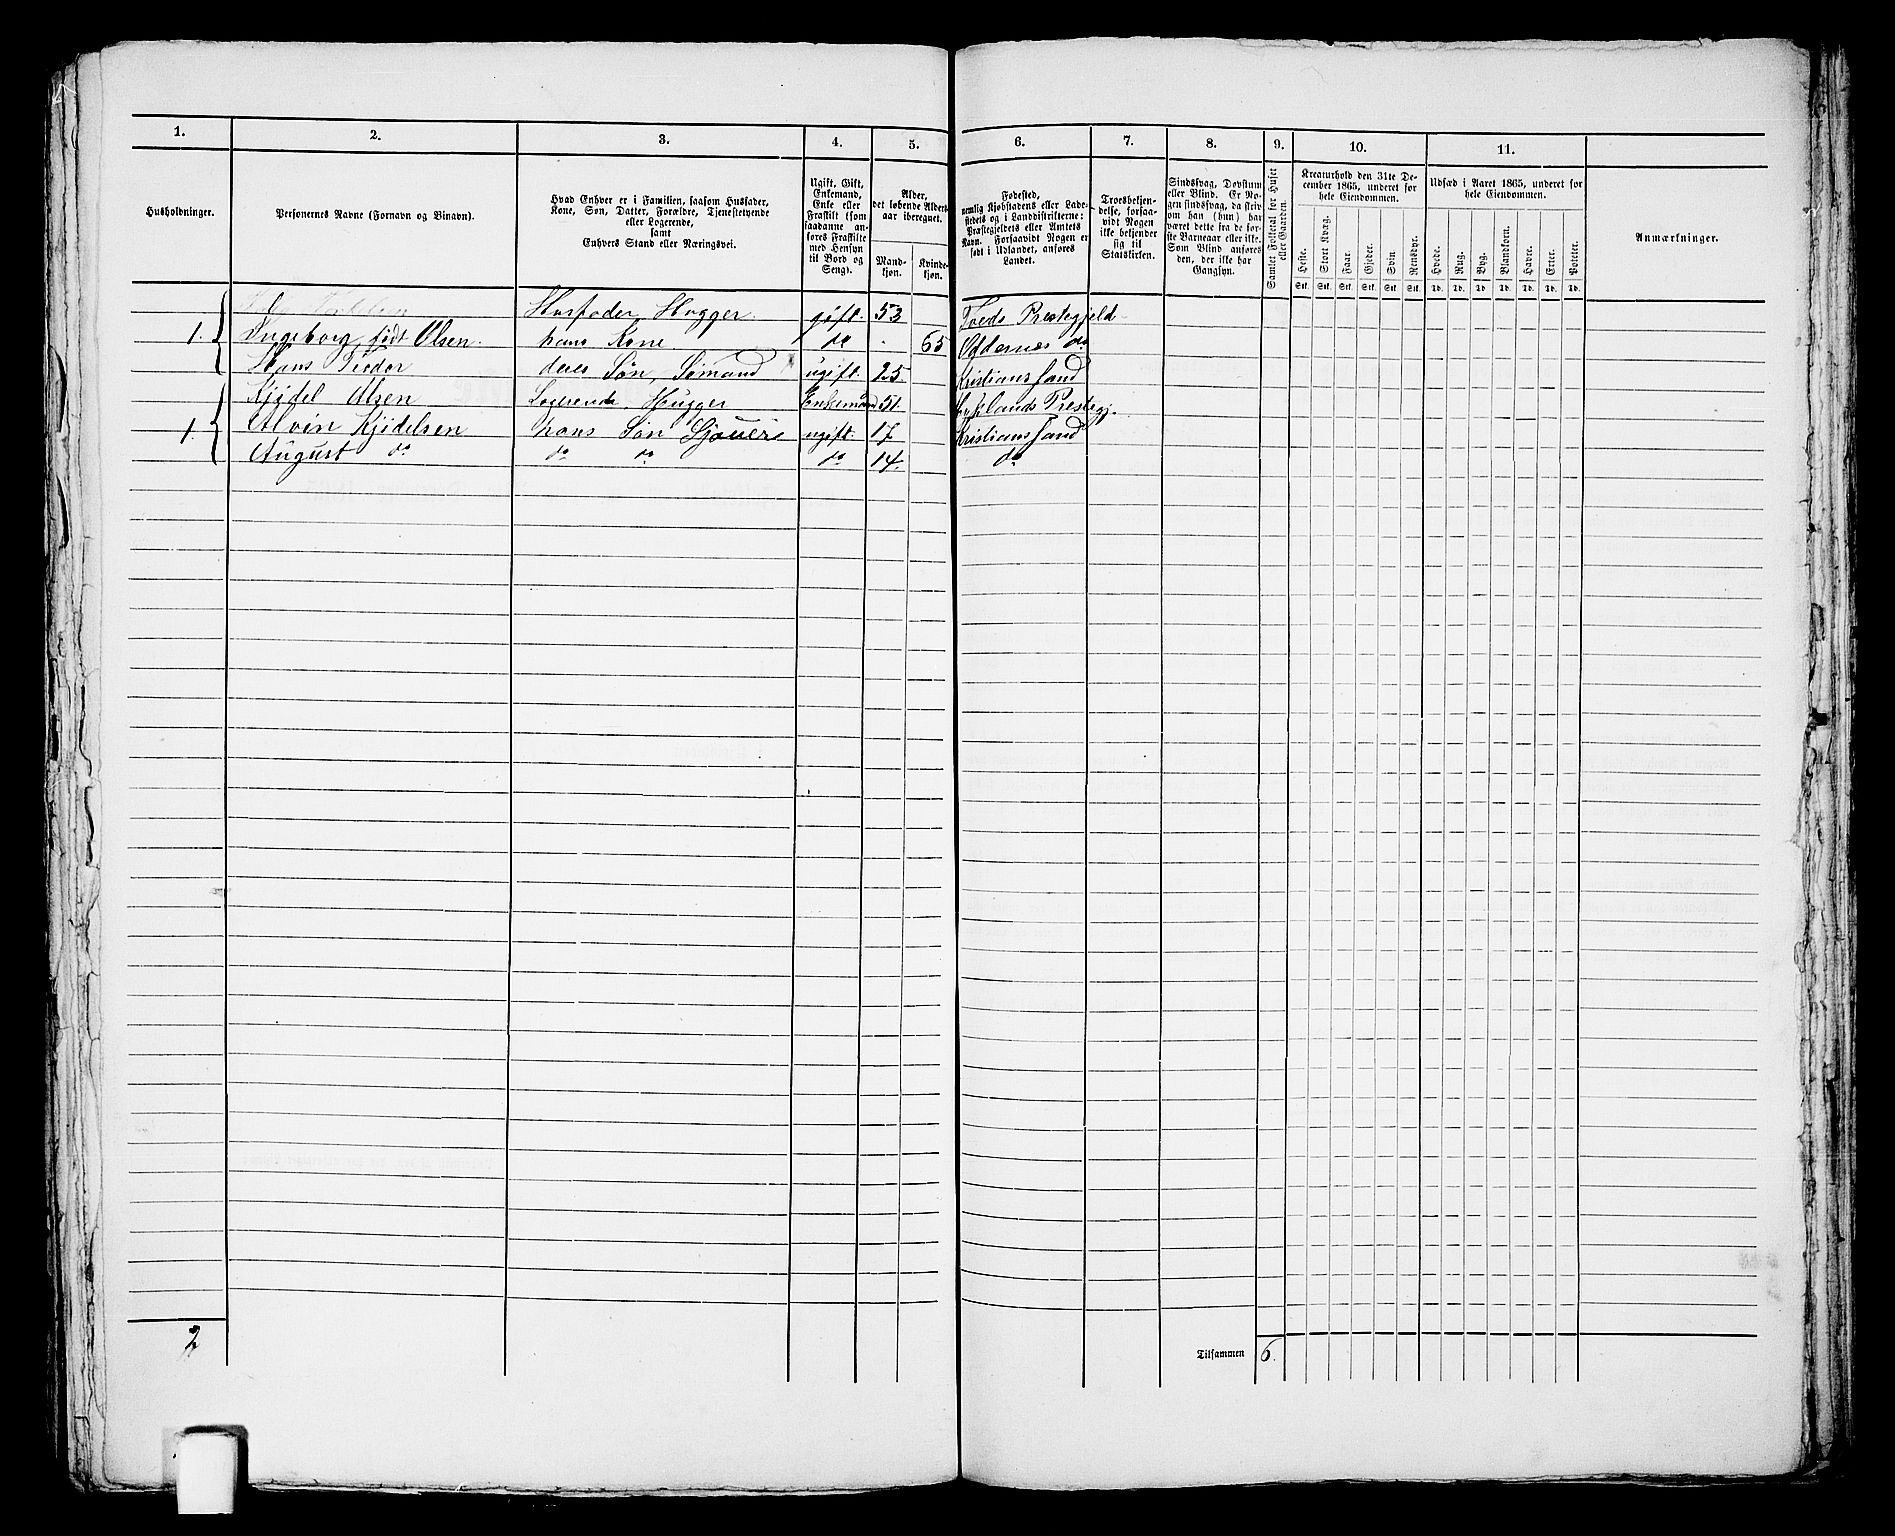 1. 2. 3. 4. 5. 6. 7. 8. 9. 10. 11.
Husholdninger.
Personernes Navne (Fornavn og Binavn).
Hvad Enhver er i Familien, saasom Husfader,
Kone, Søn, Datter, Forældre, Tjenestetyende
eller Logerende,
samt
Enhvers Stand eller Næringsvei.
Ugift, Gift,
Enkemand,
Enke eller
Fraskilt (som
saadanne an-
føres Fraskilte
med Hensyn
til Bord og
Seng).
Alder,
det løbende Alders-
aar iberegnet.
Mand-
kjøn.
Kvinde-
kjøn.
Fødested,
nemlig Kjøbstadens eller Lade-
stedets og i Landdistrikterne:
Præstegjeldets eller Amtets
Navn. Forsaavidt Nogen er
født i Udlandet, anføres
Landet.
Troesbekjen-
delse, forsaa-
vidt Nogen
ikke bekjender
sig til
Statskirken.
Sindssvag, Døvstum
eller Blind. Er No-
gen sindssvag, da Hvis
om han (hun) har
været dette fra de før-
ste Barneaar eller ikke.
Som Blind anføres
den, der ikke har
Gangsyn.
Samlet Folketal for Huset
eller Gaarden.
Kreaturhold den 31te De-
cember 1865, underet for
hele Eiendommen.
Heste. Stort Kvæg. Faar. Gjeder. Svin Rensdyr.
Stk. Stk. Stk. Stk. Stk. Stk.
Udsæd i Aaret 1865, underet for
hele Eiendommen.
Hvede. Rug. Byg. Blandkorn. Havre. Erter. Poteter.
Td. Td. Td. Td. Td. Td. Td.
Anmærkninger.
Husfader, Hugger. gift. 53 Tveds Prestegjeld
1. Ingeborg født Olsen. hans Kone. do - 65 Oddernes do
Hans Tiodor deres Søn, Sømand ugift. 25. Kristianssand
Kjidel Olsen Logerende, Hugger Enkemand 51. Prestegj.
1. Alvin Kjidelsen hans Søn Sjouer ugift. 17 Kristianssand
August do do do do 14. do
2
Tilsammen 6.